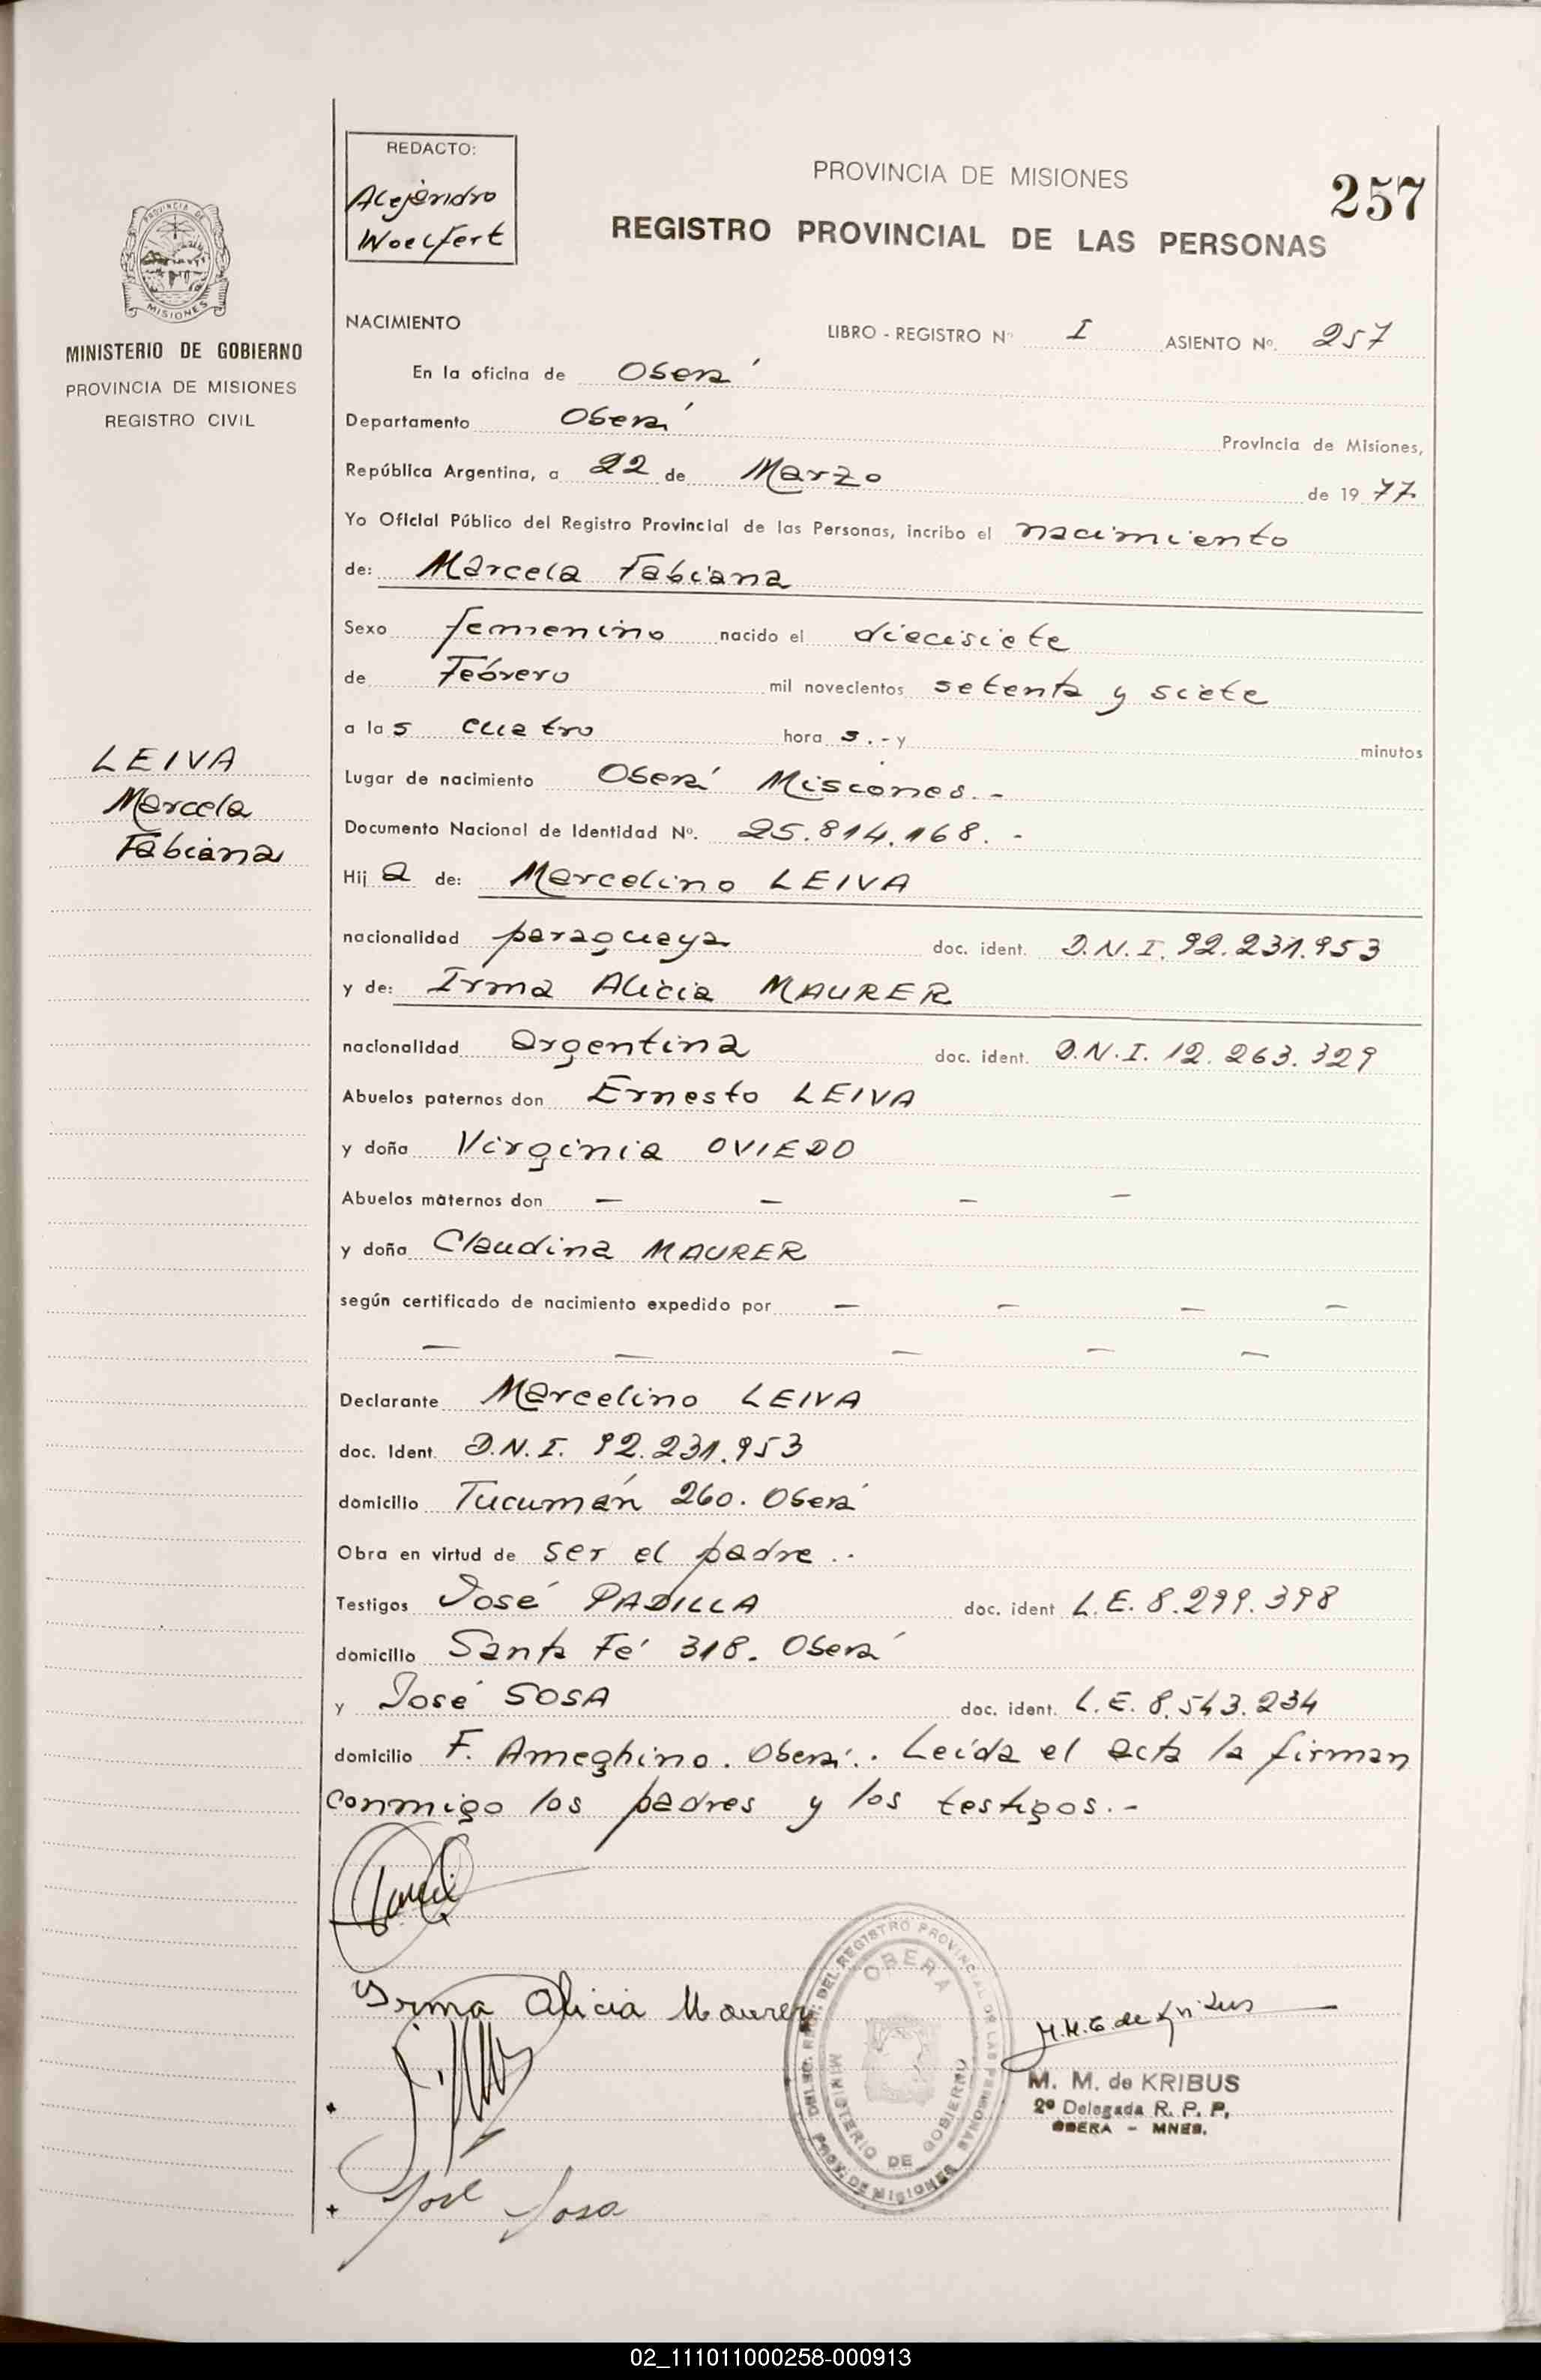 REDACTO:
Alejandro
Woelfert
PROVINCIA DE MISIONES
257
REGISTRO PROVINCIAL DE LAS PERSONAS
PROVINCIA DE
MISIONES
MINISTERIO DE GOBIERNO
PROVINCIA DE MISIONES
REGISTRO CIVIL
LEIVA
Marcela
Fabiana
NACIMIENTO LIBRO - REGISTRO Nº I ASIENTO Nº. 257
En la oficina de Oberá
Departamento Oberá Provincia de Misiones,
República Argentina, a 22 de Marzo de 19 77
Yo Oficial Público del Registro Provincial de las Personas, incribo el nacimiento
de: Marcela Fabiana
Sexo femenino nacido el diecisiete
de Febrero mil novecientos setenta y siete
a las cuatro hora s.- y minutos
Lugar de nacimiento Oberá Misiones.-
Documento Nacional de Identidad Nº. 25.814.168.-
Hij a de: Marcelino LEIVA
nacionalidad paraguaya doc. ident. D.N.I. 92.231.953
y de: Irma Alicia MAURER
nacionalidad argentina doc. ident. D.N.I. 12.263.329
Abuelos paternos don Ernesto LEIVA
y doña Virginia OVIEDO
Abuelos maternos don — — — —
y doña Claudina MAURER
según certificado de nacimiento expedido por — — — —
— — — — —
Declarante Marcelino LEIVA
doc. Ident. D.N.I. 92.231.953
domicilio Tucumán 260. Oberá
Obra en virtud de ser el padre..
Testigos José PADILLA doc. ident L.E. 8.299.398
domicilio Santa Fé 318. Oberá
y José SOSA doc. ident. L.E. 8.543.234
domicilio F. Ameghino. Oberá.. Leída el acta la firman
conmigo los padres y los testigos.-
Irma Alicia Maurer
DEL REGISTRO PROVINCIAL DE LAS PERSONAS
OBERA
MINISTERIO DE GOBIERNO
PROV. DE MISIONES
M. M. de KRIBUS
2º Delegada R. P. P.
OBERA - MNES.
José Sosa
02_111011000258-000913